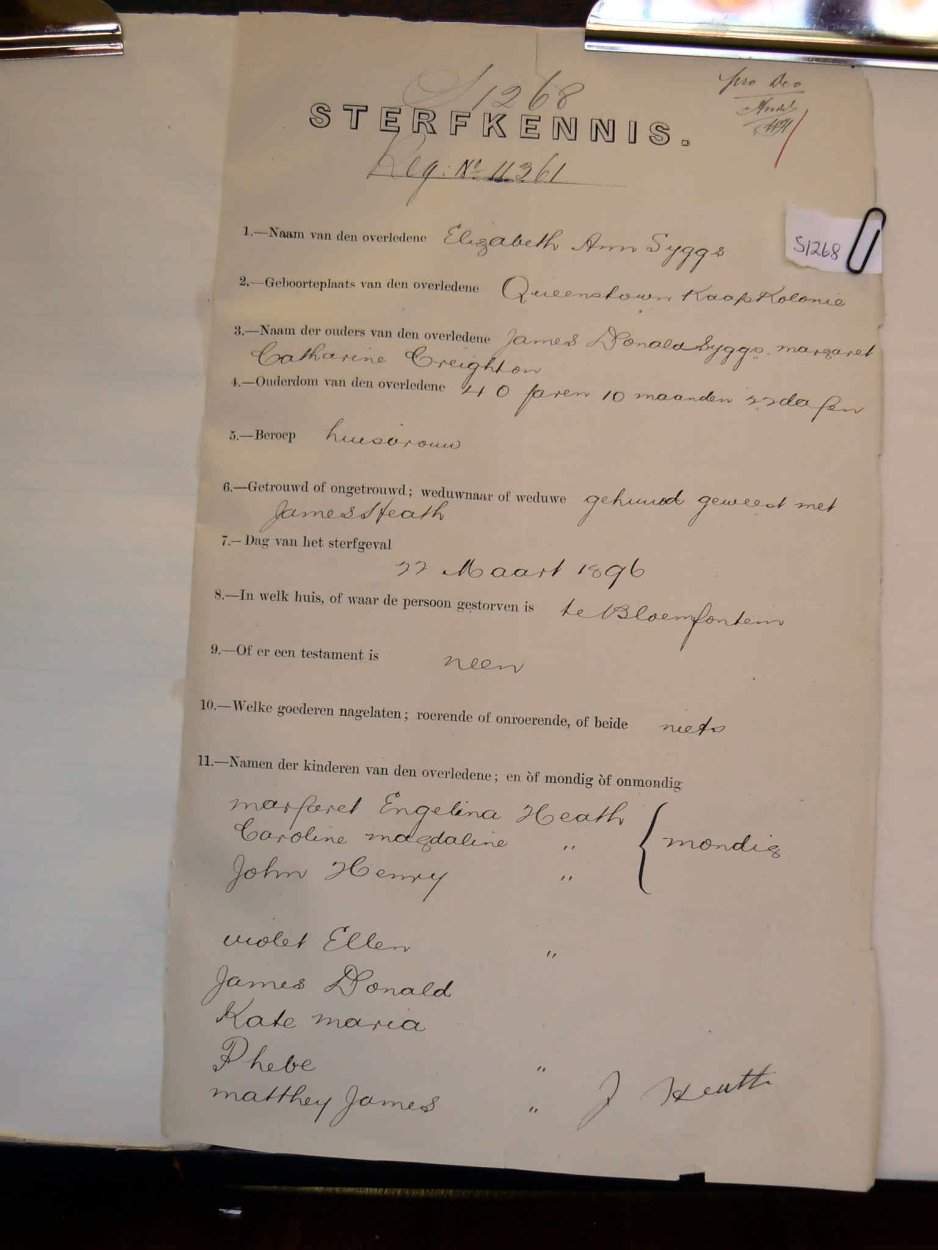 S1268
pro Deo
STERFKENNIS.
Reg: No 11361
S1268
1.—Naam van den overledene Elizabeth Ann Syggs
2.—Geboorteplaats van den overledene Queenstown Kaap Kolonie
3.—Naam der ouders van den overledene James Donald Syggs. margaret
Catharine Creighton
4.—Ouderdom van den overledene 40 jaren 10 maanden 22 dajen
5.—Beroep huisvrouw
6.—Getrouwd of ongetrouwd; weduwnaar of weduwe gehuwd geweest met
James Heath
7.—Dag van het sterfgeval
22 Maart 1896
8.—In welk huis, of waar de persoon gestorven is te Bloemfontein
9.—Of er een testament is neen
10.—Welke goederen nagelaten; roerende of onroerende, of beide niets
11.—Namen der kinderen van den overledene; en òf mondig òf onmondig
margaret Engelina Heath
Caroline magdaline " mondig
John Henry "
violet Ellen "
James Donald
Kate maria
Phebe "
matthey James " J Heath